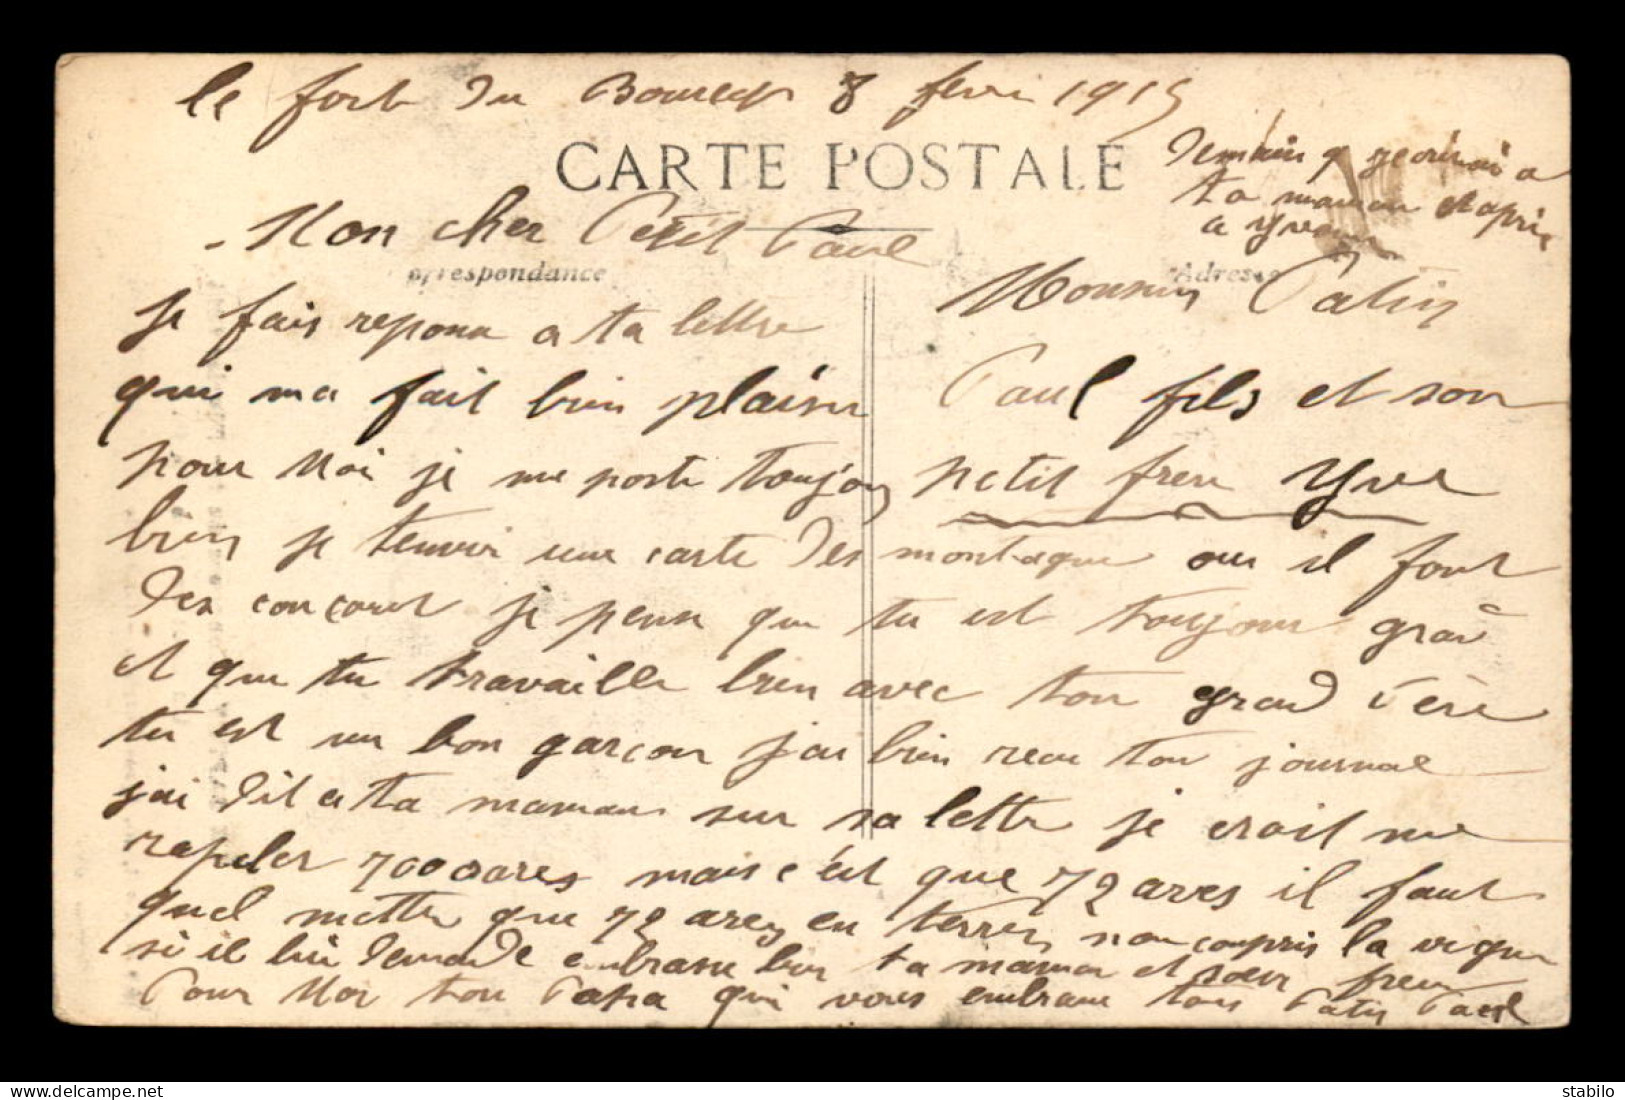 le fort du Bourcq 8 fevri 1915
CARTE POSTALE
Demain j ecrirai a
ta maman et apris
a Yve
Mon cher Petit Paul
orrespondance
Adresse
Monsieur Patin
Paul fils et son
petit frere Yve
je fais repons a ta lettre
qui ma fait bien plaisir
pour Moi je me porte toujour
bien je tenvoi une carte des montagne ou il font
des concourt je pense que tu est toujour
et que tu travaille bien avec ton grand Père
tu est un bon garcon j'ai bien recu ton journal
j'ai dit a ta maman sur sa lettre je croit me
rapeler 700 ares mais c'est que 72 ares il faut
quel mette que 72 ares en terres non compris la vigne
si il lui demande embrasse bien ta maman et soeur frere
Pour Moi ton Papa qui vous embrasse tous Patin Paul
stabilo